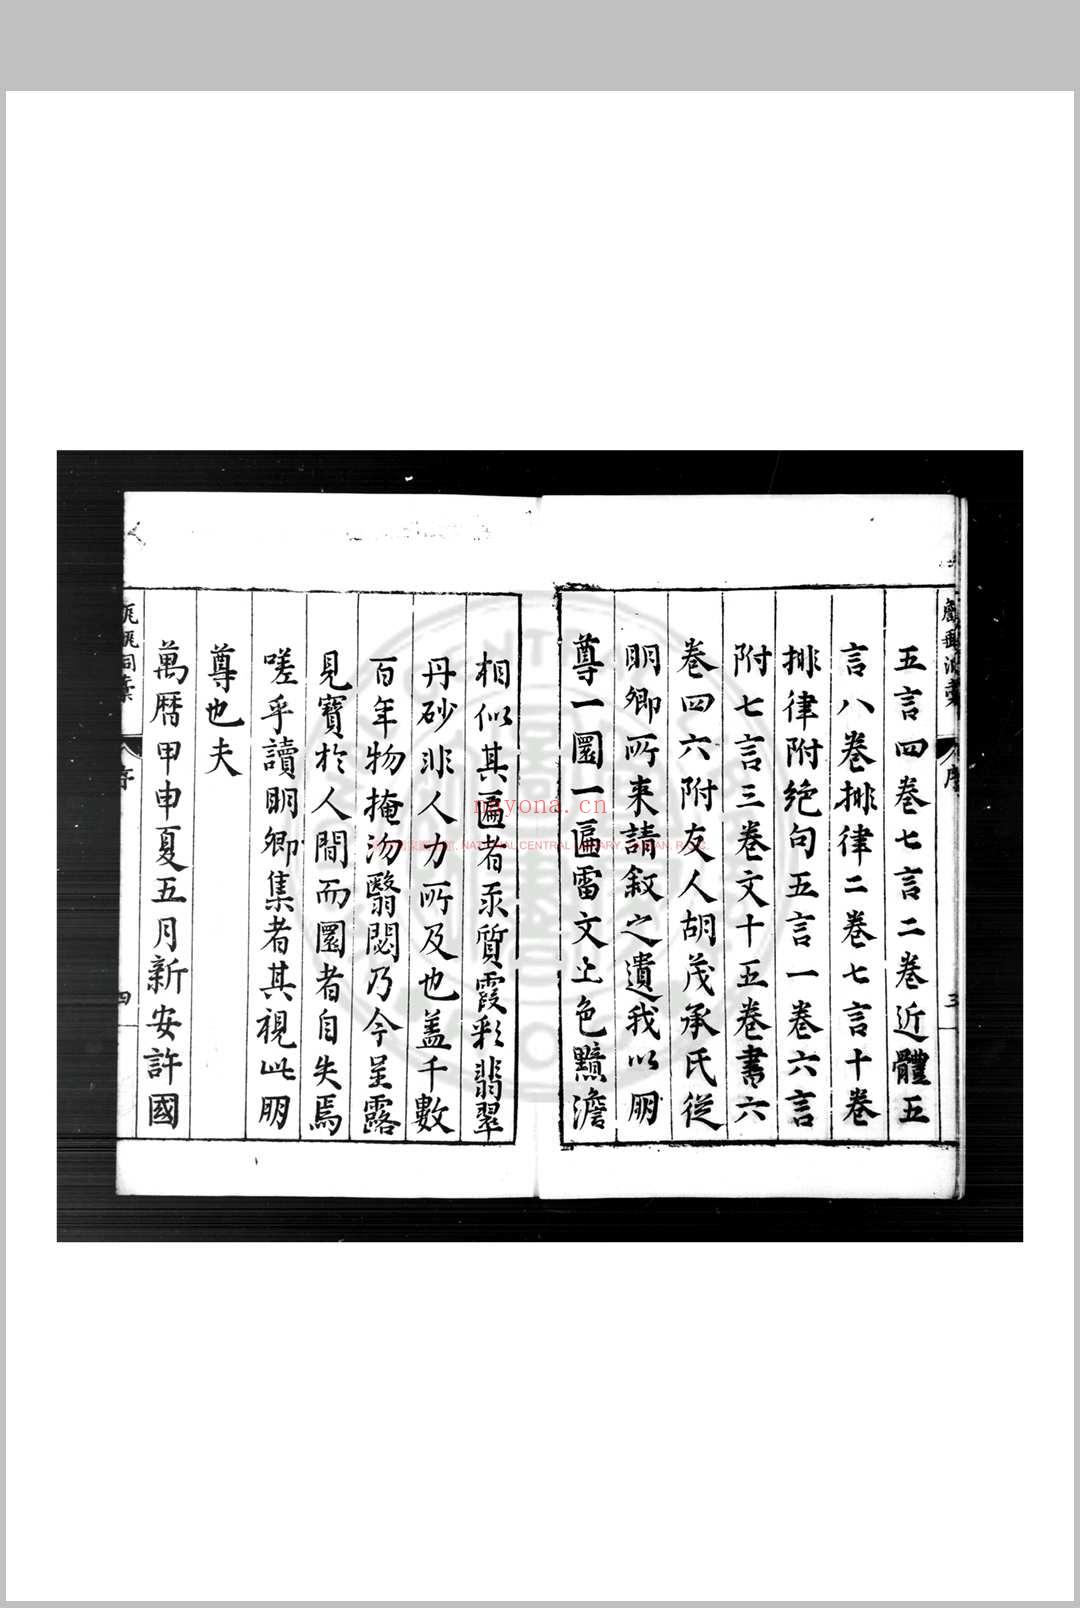 五言四卷七言二卷近體五
言八卷排律二卷七言十卷
排律附絕句五言一卷六言
附七言三卷文十五卷書六
卷四六附友人胡茂承氏從
明卿所來請叙之遺我以朙
尊一圜一匾雷文上色黯澹
相似其匾者汞質霞彩翡翠
丹砂非人力所及也盖千數
百年物掩汤翳閟乃今呈露
見寶於人間而圜者自失焉
嗟乎讀明卿集者其視此朙
尊也夫
萬曆甲申夏五月新安許國
序
三
序
四
nayona.cn
NATIONAL CENTRAL LIBRARY, TAIWAN, R.O.C.